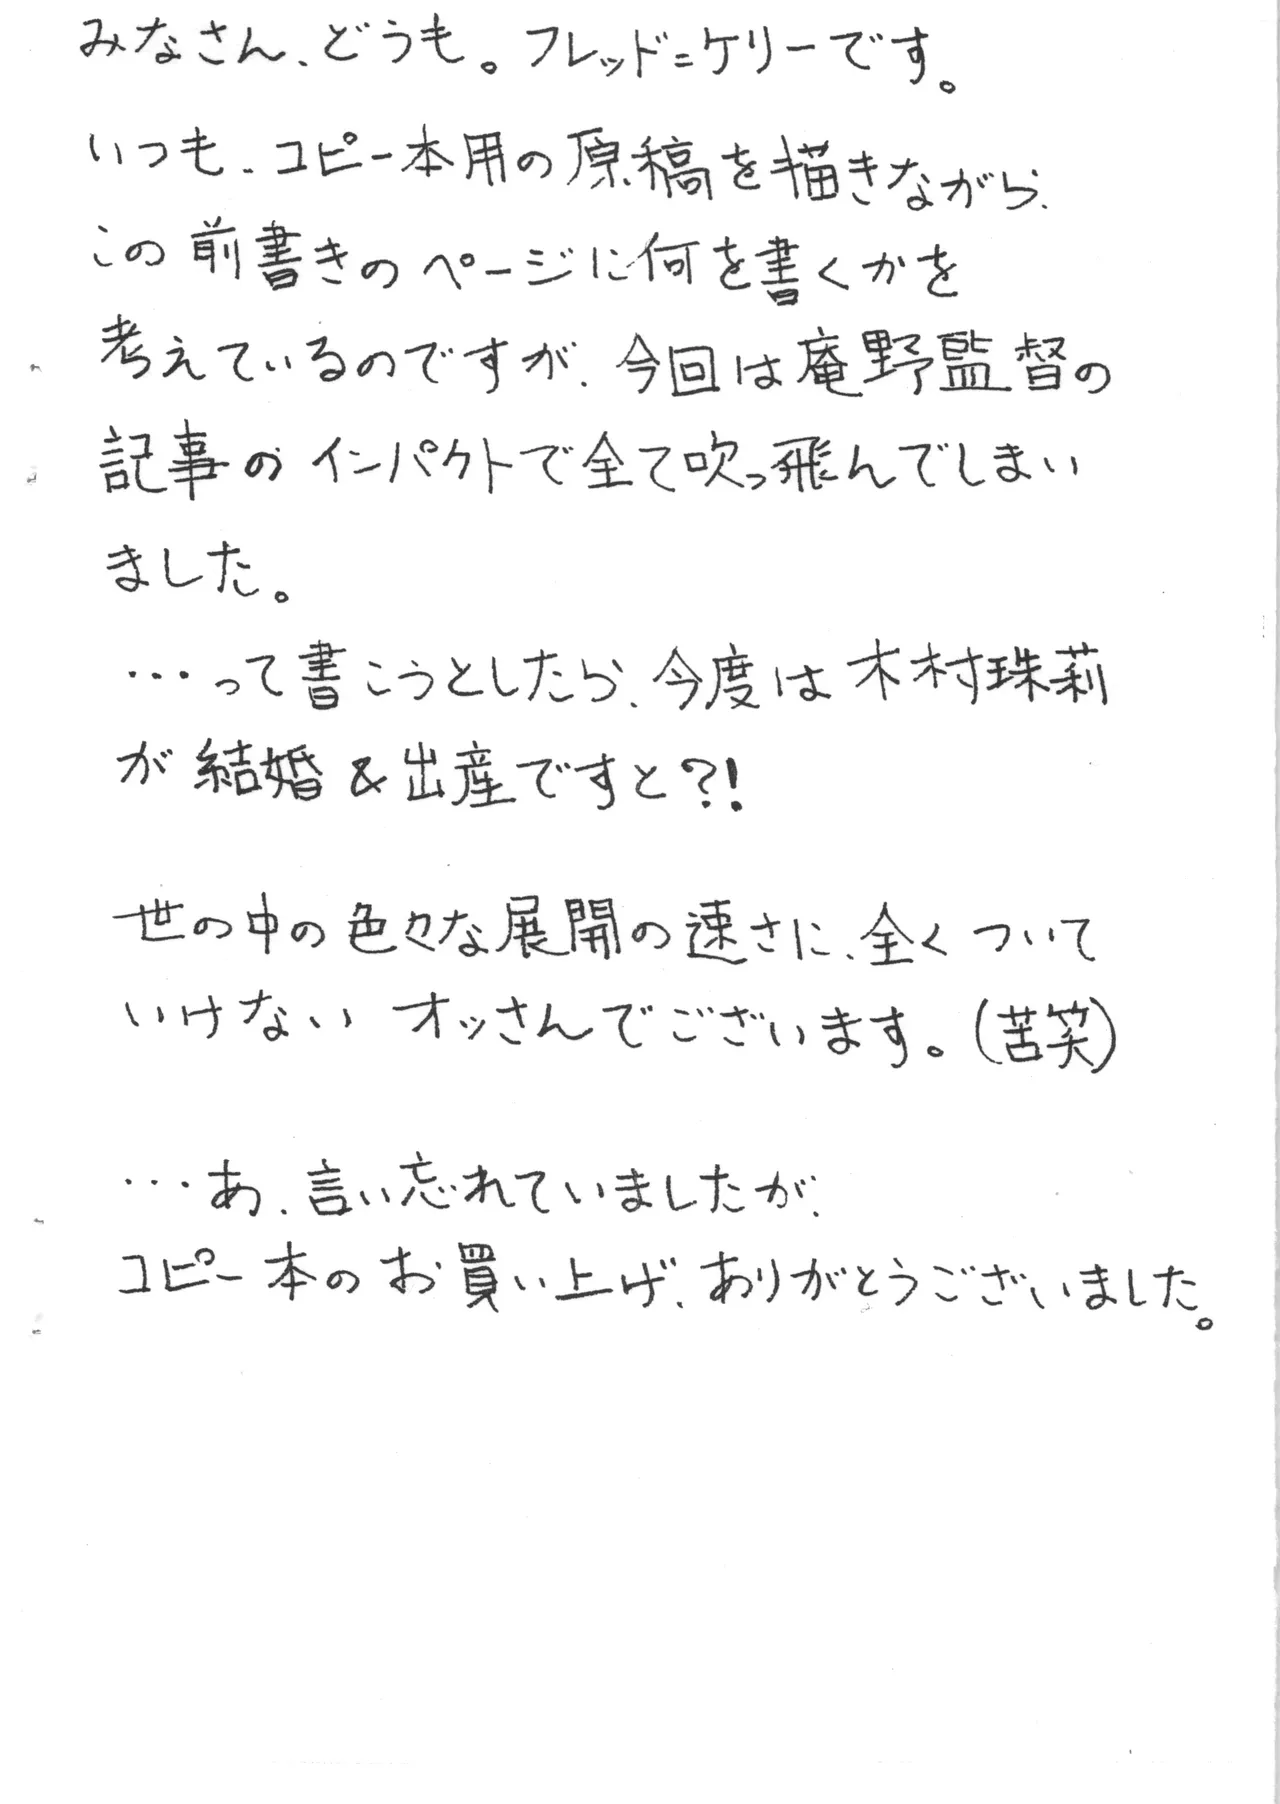 みなさん、どうも。フレッド=ケリーです。
いつも、コピー本用の原稿を描きながら、
この前書きのページに何を書くかを
考えているのですが、今回は庵野監督の
記事のインパクトで全て吹っ飛んでしまい
ました。
…って書こうとしたら、今度は木村珠莉
が結婚&出産ですと?!
世の中の色々な展開の速さに、全くついて
いけないオッさんでございます。(苦笑)
…あ、言い忘れていましたが、
コピー本のお買い上げ、ありがとうございました。